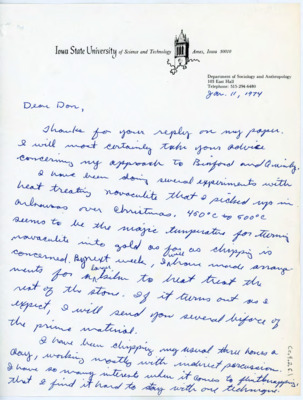 Iowa State University of Science and Technology Ames, Iowa 50010
Department of Sociology and Anthropology
103 East Hall
Telephone: 515-294-6480
Jan. 11, 1974
Dear Don,
Thanks for your reply on my paper.
I will most certainly take your advice
concerning my approach to Binford and Quimby.
I have been doing several experiments with
heat treating novaculite that I picked up in
Arkansas over Christmas. 450°C to 500°C
seems to be the magic temperature for turning
novaculite into gold as far as chipping is
concerned. By next week, I will have made arrange
ments for a large kiln to heat treat the
rest of the stone. If it turns out as I
expect, I will send you several biface of
the prime material.
I have been chipping my usual three hours a
day, working mostly with indirect percussion.
I have so many interest when it comes to flintknapping
that I find it hard to stay with one technique.